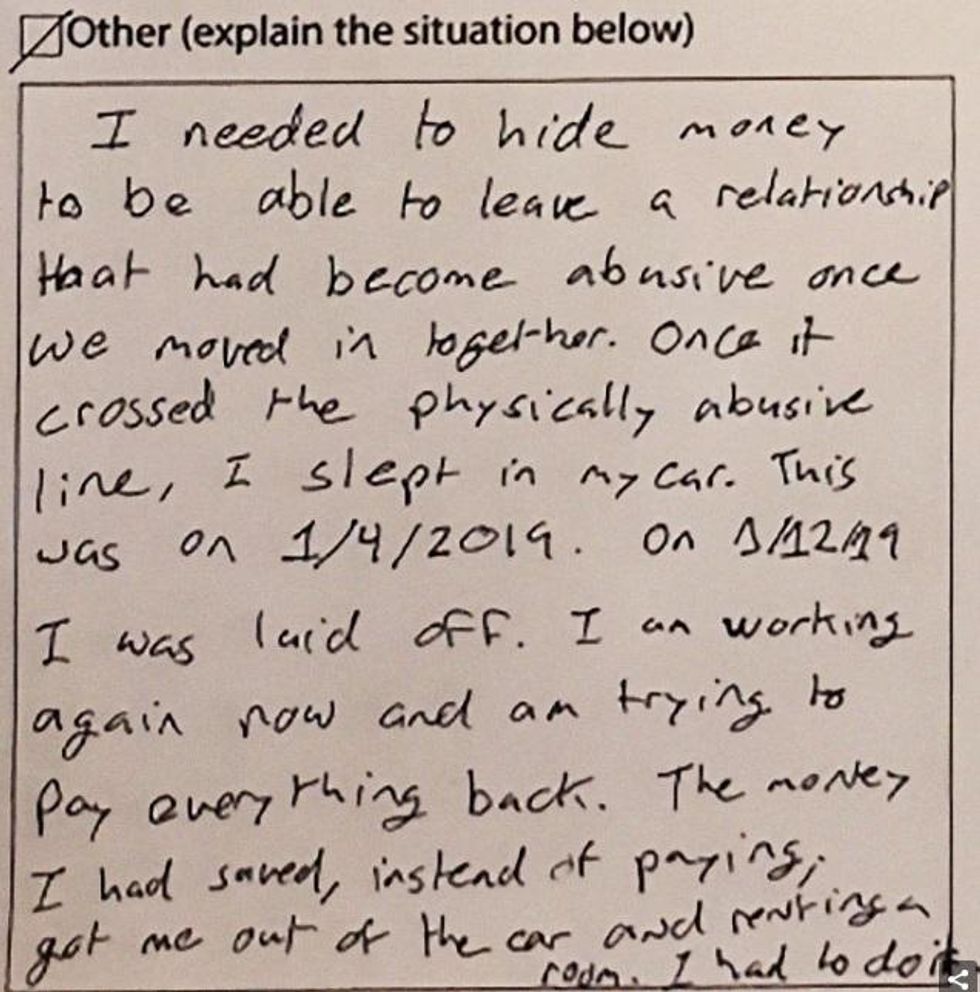 Other (explain the situation below)
I needed to hide money
to be able to leave a relationship
that had become abusive once
we moved in together. Once it
crossed the physically abusive
line, I slept in my car. This
was on 1/4/2019. On 1/12/19
I was laid off. I am working
again now and am trying to
pay everything back. The money
I had saved, instead of paying,
got me out of the car and renting a
room. I had to do it